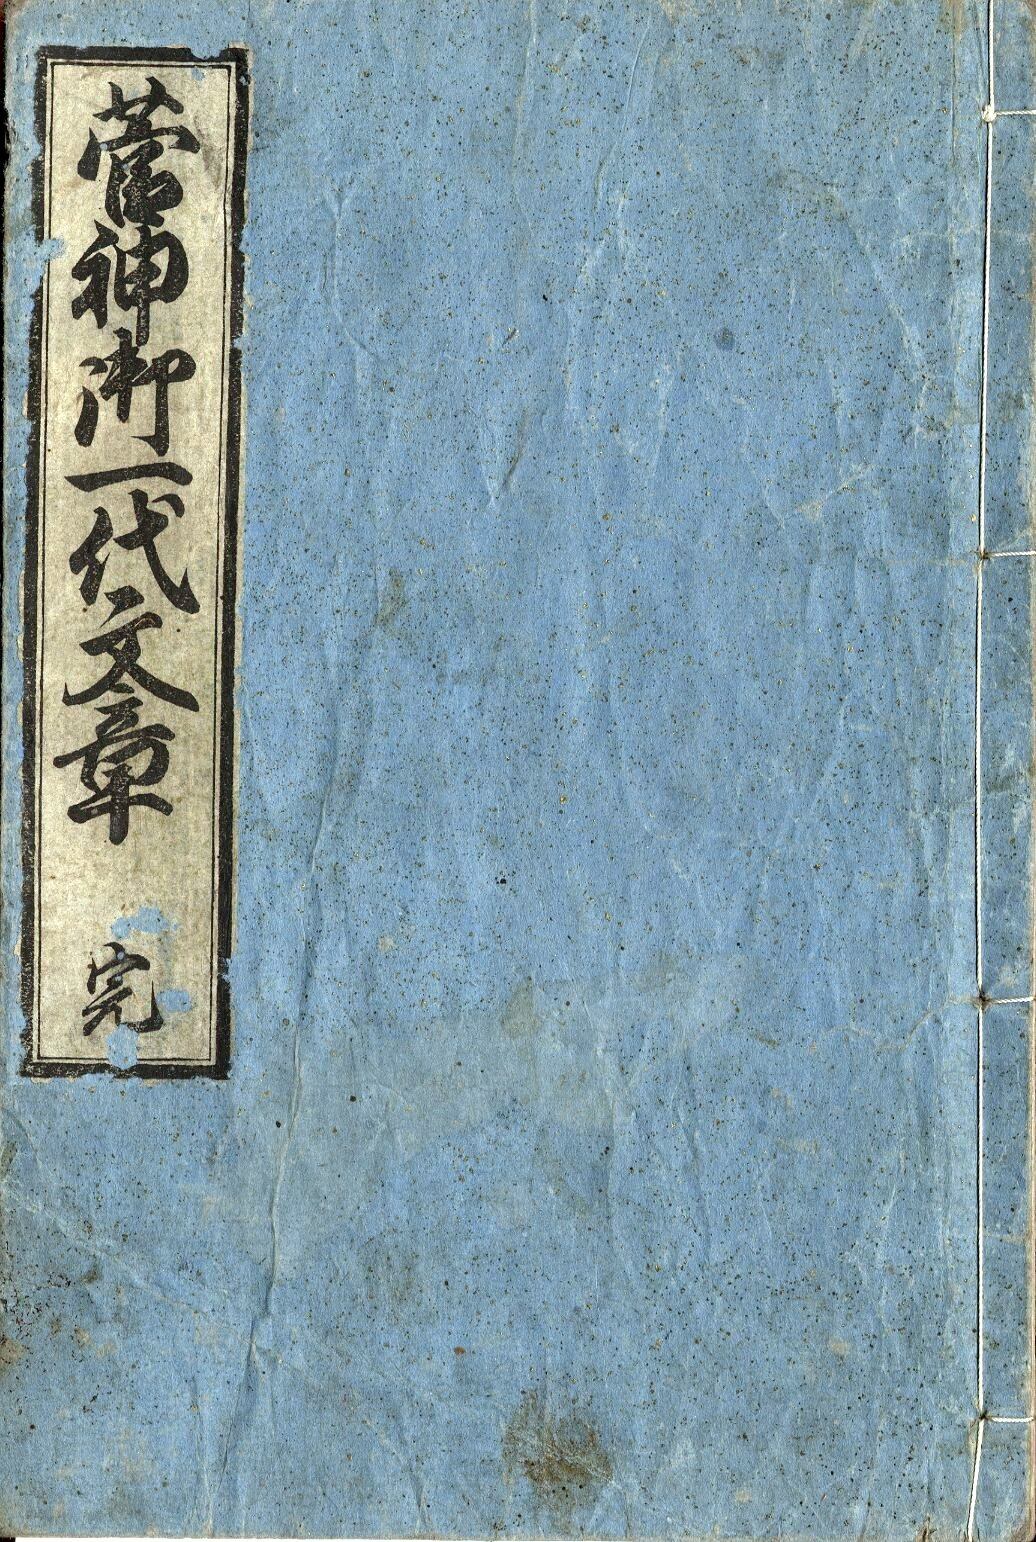 菅神御一代文章 完